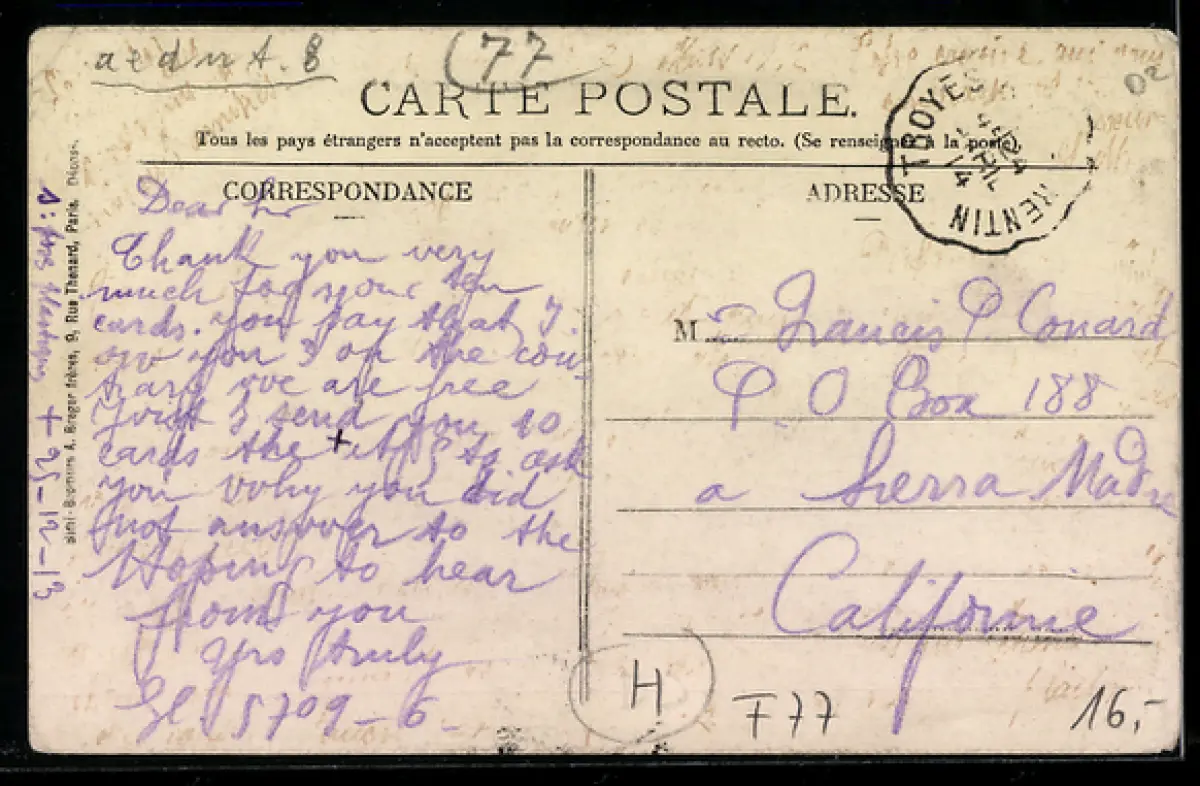 (77
CARTE POSTALE.
Tous les pays étrangers n'acceptent pas la correspondance au recto. (Se renseigner à la poste)
CORRESPONDANCE
Dear Sir
Thank you very
much for your ten
cards. you say that I
ow you 3 on the con-
trary we are free
I send you 10
cards the + to ask
you vohy you did
not answer to the
Hoping to hear
from you
Yrs truly
5709-6
+ 25-12-13
9, Rue Thenard, Paris.
ADRESSE
TROYES
14
RENTIN
M Francis P. Conard
P. O Box 188
a Sierra Madre
Californie
H
F77
16,-